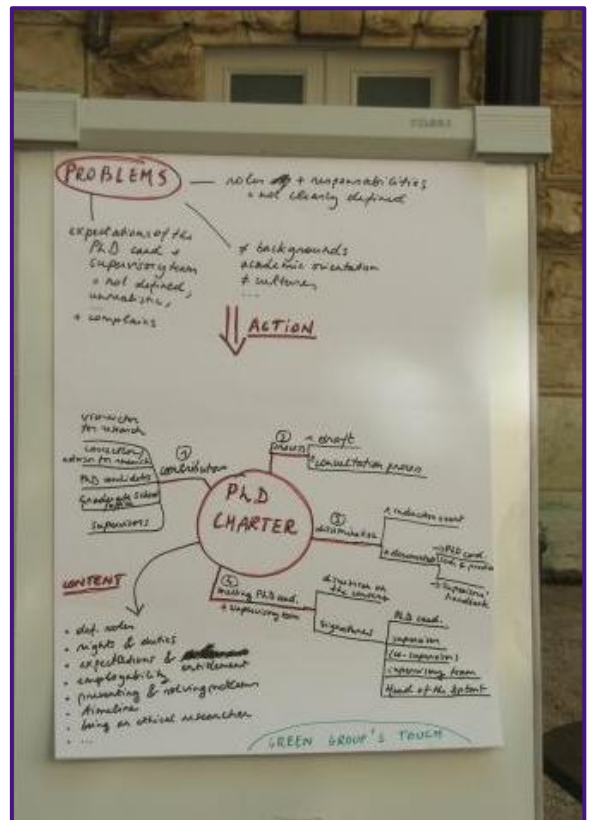 PROBLEMS
roles + responsabilities
= not clearly defined
expectations of the
PhD cand +
supervisory team
= not defined,
unrealistic,
...
+ complains
≠ backgrounds
academic orientation
≠ cultures
...
ACTION
PhD
CHARTER
① contributors
for research
advisor for research
PhD candidates
Graduate School
supervisors
② process
draft
consultation process
③ dissemination
induction event
PhD cand.
supervisors'
handbook
④ meeting PhD cand.
+ supervisory team
discussion on
the content
signatures
PhD cand.
supervisors
co-supervisors
supervisory team
Head of the
CONTENT
• def. roles
• rights & duties
• expectations & entitlement
• employability
• preventing & solving problems
• timeline
• being an ethical researcher
• ...
GREEN GROUP'S TOUCH